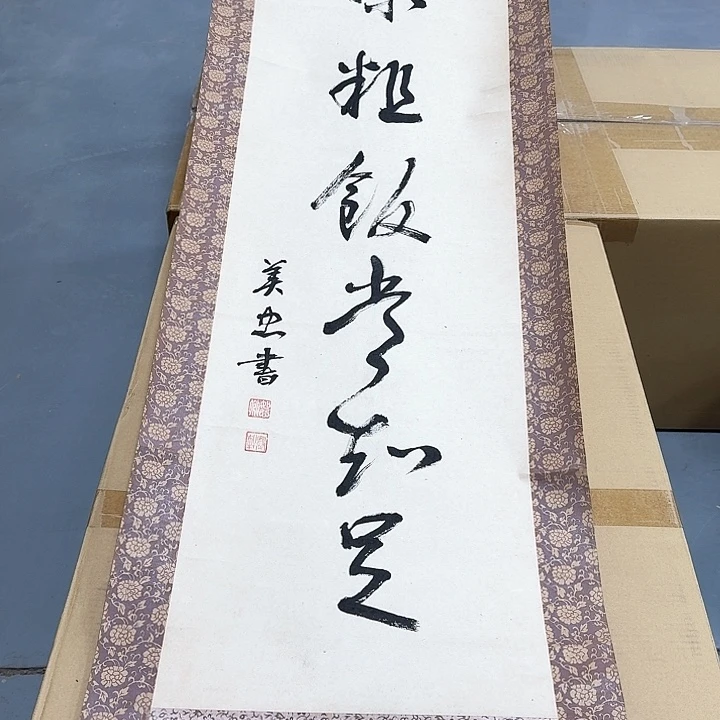 粗飯常知足
美忠書